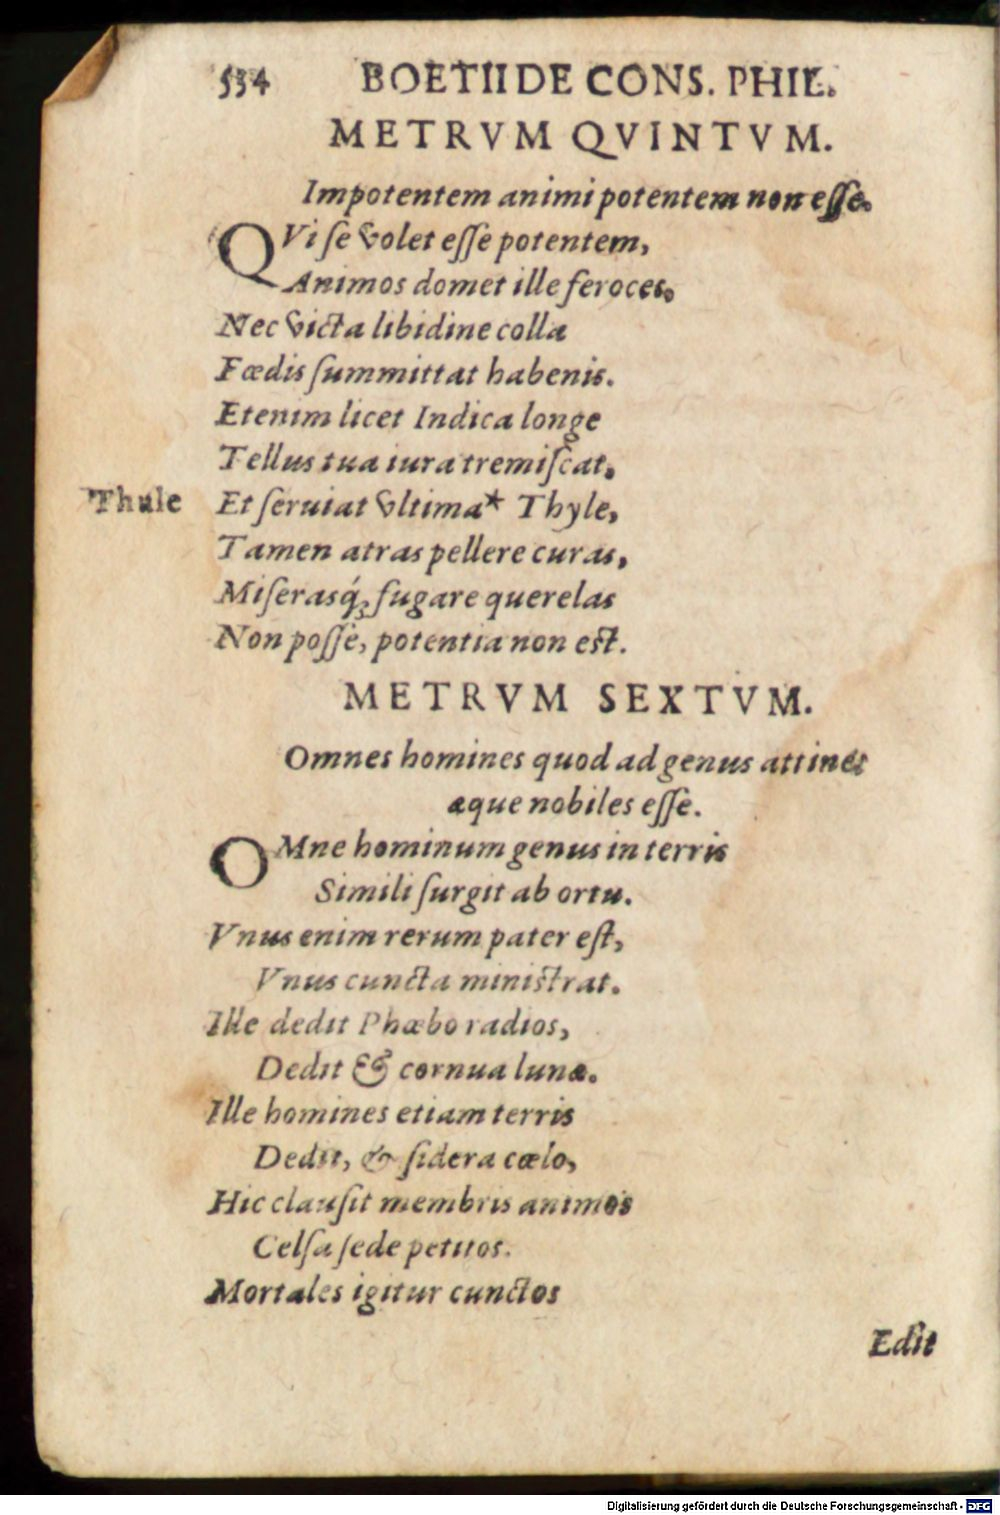 534 BOETII DE CONS. PHIL.
METRVM QVINTVM.
Impotentem animi potentem non eſſe.
QVi ſe volet eſſe potentem,
Animos domet ille feroces.
Nec victa libidine colla
Fœdis ſummittat habenis.
Etenim licet Indica longe
Tellus tua iura tremiſcat,
*Thule Et ſeruiat vltima* Thyle,
Tamen atras pellere curas,
Miſerasq́; fugare querelas
Non poſſe, potentia non est.
METRVM SEXTVM.
Omnes homines quod ad genus attinet
æque nobiles eſſe.
OMne hominum genus in terris
Simili ſurgit ab ortu.
Vnus enim rerum pater eſt,
Vnus cuncta ministrat.
Ille dedit Phœbo radios,
Dedit & cornua lunæ.
Ille homines etiam terris
Dedit, & ſidera cœlo,
Hic clauſit membris animos
Celſa ſede petitos.
Mortales igitur cunctos
Edit
Digitalisierung gefördert durch die Deutsche Forschungsgemeinschaft - DFG